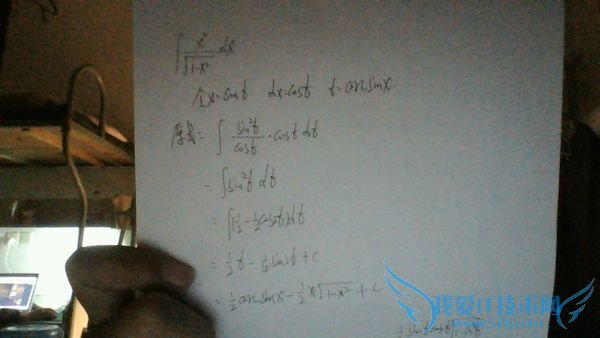 ∫ x²/√(1-x²) dx
令x=sint dx=cost t=arcsinx
原式= ∫ sin²t/cost · cost dt
= ∫sin²t dt
= ∫(½-½cos2t)dt
= ½t - ¼sin2t + C
= ½arcsinx - ½x√(1-x²) + C
我爱IT技术网